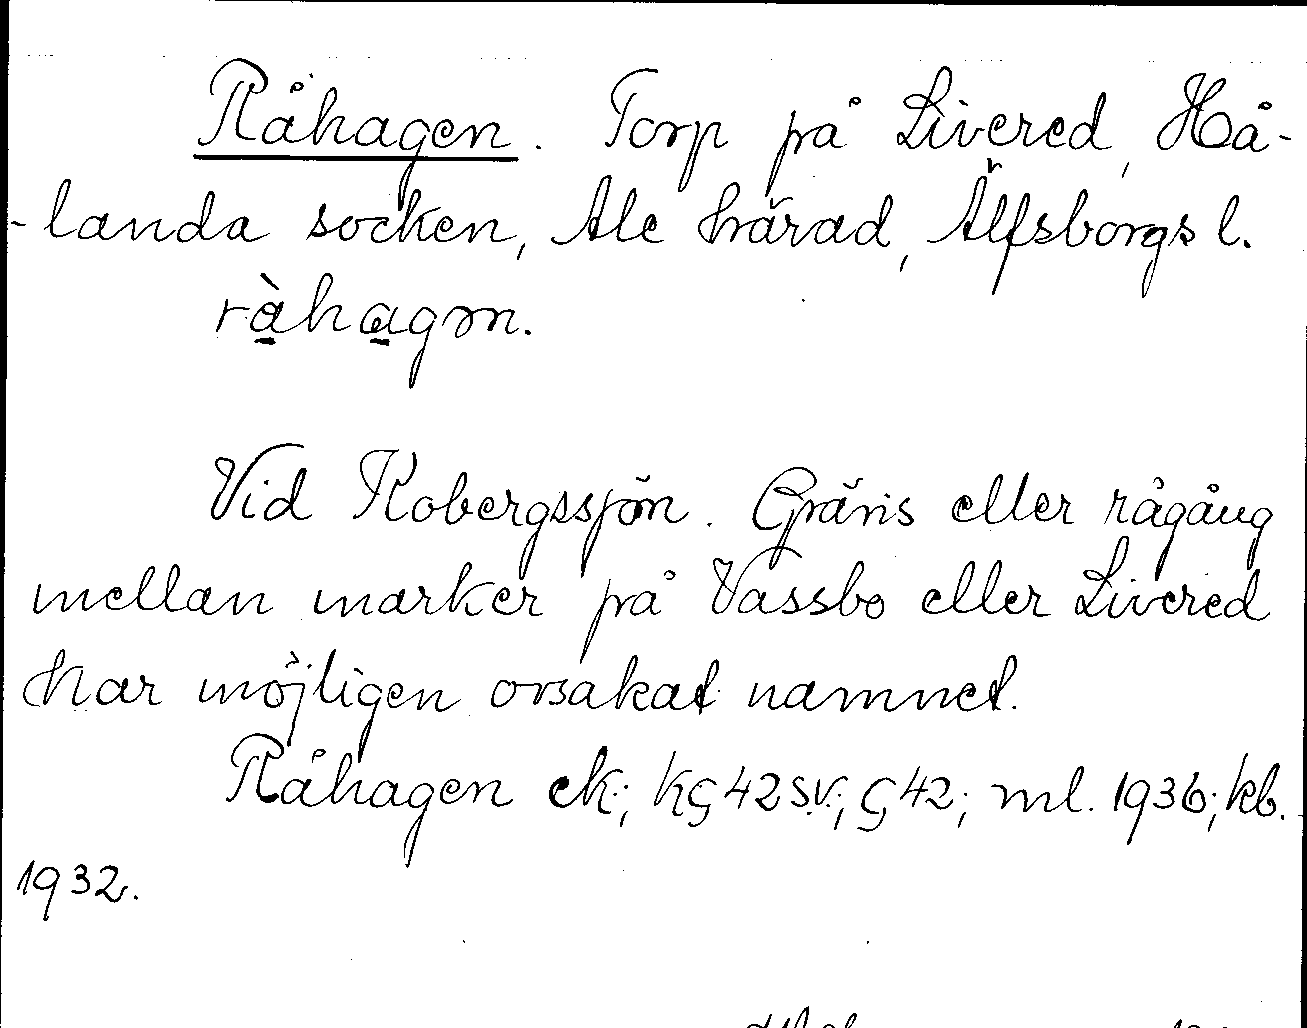 Råhagen. Torp på Livered, Hå-
-landa socken, Ale härad, Älfsborgs l.
ràhagən.
Vid Kobergssjön. Gräns eller rågång
mellan marker på Vassbo eller Livered
har möjligen orsakat namnet.
Råhagen ek; KG 42 SV.; G 42; ml. 1936; kb.
1932.